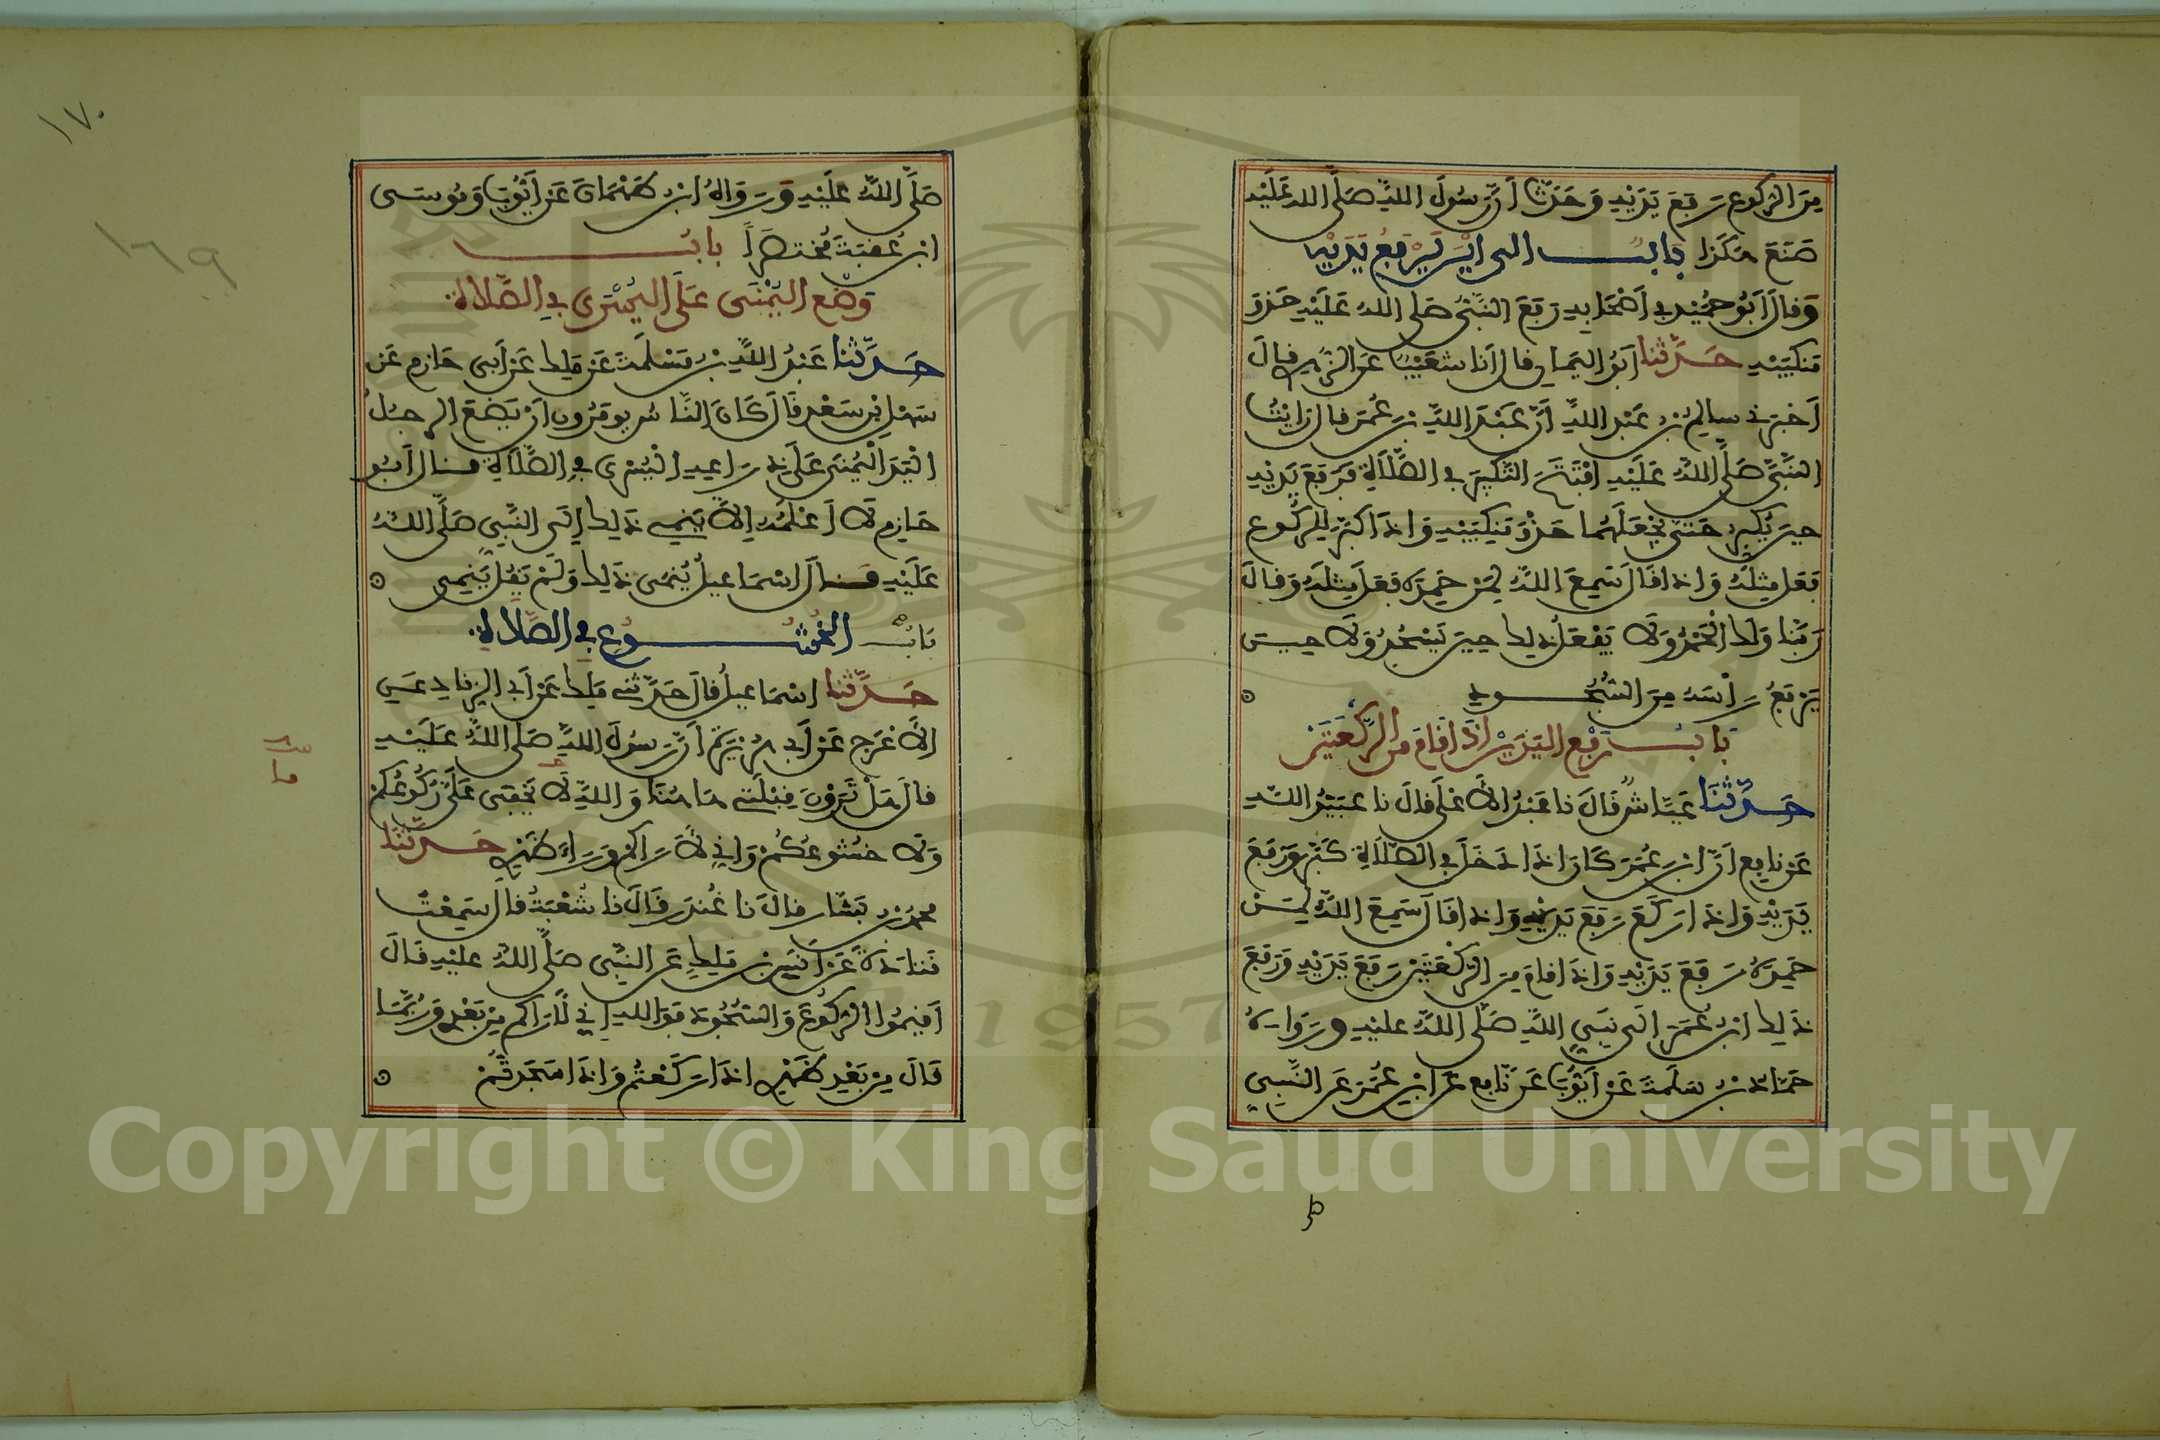 من الركوع رفع يديه وحدث أن رسول الله صلى الله عليه
صنع هكذا باب إلى أين يرفع يديه
وقال أبو حميد في أصحابه رفع النبي صلى الله عليه حذو
منكبيه حدثنا أبو اليمان قال أنا شعيب عن الزهري قال
أخبرني سالم بن عبد الله أن عبد الله بن عمر قال رأيت
النبي صلى الله عليه افتتح التكبير في الصلاة فرفع يديه
حين يكبر حتى يجعلهما حذو منكبيه وإذا كبر للركوع
فعل مثله وإذا قال سمع الله لمن حمده فعل مثله وقال
ربنا ولك الحمد ولا يفعل ذلك حين يسجد ولا حين
يرفع رأسه من السجود
باب رفع اليدين إذا قام من الركعتين
حدثنا عياش قال نا عبد الأعلى قال نا عبيد الله
عن نافع أن ابن عمر كان إذا دخل في الصلاة كبر ورفع
يديه وإذا ركع رفع يديه وإذا قال سمع الله لمن
حمده رفع يديه وإذا قام من الركعتين رفع يديه ورفع
ذلك ابن عمر إلى نبي الله صلى الله عليه ورواه
حماد بن سلمة عن أيوب عن نافع عن ابن عمر عن النبي
١٧٠
١٦٩
صلى الله عليه ورواه ابن طهمان عن أيوب وموسى
ابن عقبة مختصرا باب
وضع اليمنى على اليسرى في الصلاة
حدثنا عبد الله بن مسلمة عن ملك عن أبي حازم عن
سهل بن سعد قال كان الناس يومرون أن يضع الرجل
اليد اليمنى على ذراعه اليسرى في الصلاة قال أبو
حازم لا أعلمه إلا ينمي ذلك إلى النبي صلى الله
عليه قال إسماعيل ينمى ذلك ولم يقل ينمي
باب الخشوع في الصلاة
حدثنا إسماعيل قال حدثني ملك عن أبي الزناد عن
الأعرج عن أبي هريرة أن رسول الله صلى الله عليه
قال هل ترون قبلتي هاهنا والله لا يخفى علي ركوعكم
ولا خشوعكم وإني لأراكم وراء ظهري حدثنا
محمد بن بشار قال نا غندر قال نا شعبة قال سمعت
قتادة عن أنس بن ملك عن النبي صلى الله عليه قال
أقيموا الركوع والسجود فوالله إني لأراكم من بعدي وربما
قال من بعد ظهري إذا ركعتم وإذا سجدتم
1957
Copyright © King Saud University